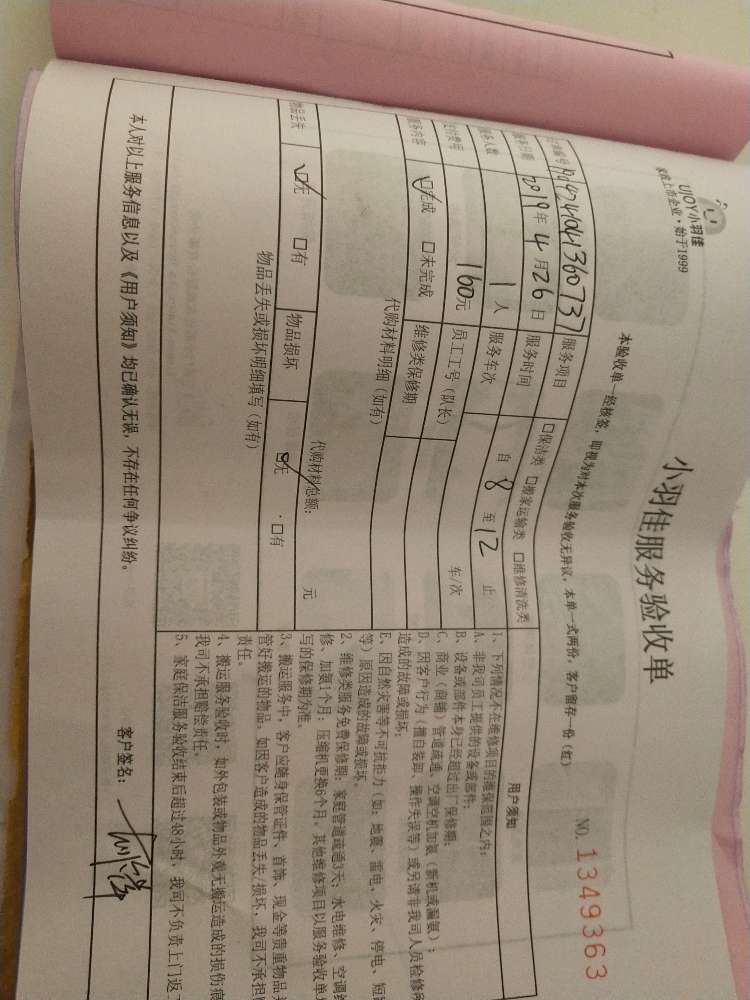 UJOY小羽佳
家政上市企业·始于1999
小羽佳服务验收单
本验收单一经核签，即视为对本次服务验收无异议，本单一式两份，客户留存一份（红）
NO. 1349363
服务项目 □保洁类 □搬家运输类 □维修清洗类
服务日期 2019年4月26日 服务时间 自 8 至 12 止
服务人数 1人 服务车次 车/次
160元 员工工号（队长）
服务内容 ☑完成 □未完成 维修类保修期
代购材料明细（如有）
代购材料总额： 元
物品丢失 ☑无 □有 物品损坏 ☑无 □有
物品丢失或损坏明细填写（如有）
用户须知
1、下列情况不在维修项目的维保范围之内：
A、非我司员工提供的设备或部件；
B、设备或部件本身已经超过出厂保修期；
C、商业（商铺）管道疏通、空调空机加氨（新机或漏氨）；
D、因客户行为（擅自装卸、操作失误等）或另请非我司人员检修所
造成的故障或损坏；
E、因自然灾害等不可抗拒力（如：地震、雷电、火灾、停电、短
等）原因造成的故障或损坏。
2、维修类服务免费保修期：家庭管道疏通3天；水电维修、空调
修、加氨1个月；压缩机更换6个月，其他维修项目以服务验收单
写的保修期为准。
3、搬运服务中，客户应随身保管证件、首饰、现金等贵重物品
管好搬运的物品，如因客户造成的物品丢失/损坏，我司不承担
责任。
4、搬运服务验收时，如外包装或物品外观无搬运造成的损伤痕
我司不承担赔偿责任。
5、家庭保洁服务验收结束后超过48小时，我司不负责上门返
本人对以上服务信息以及《用户须知》均已确认无误，不存在任何争议纠纷。
客户签名：